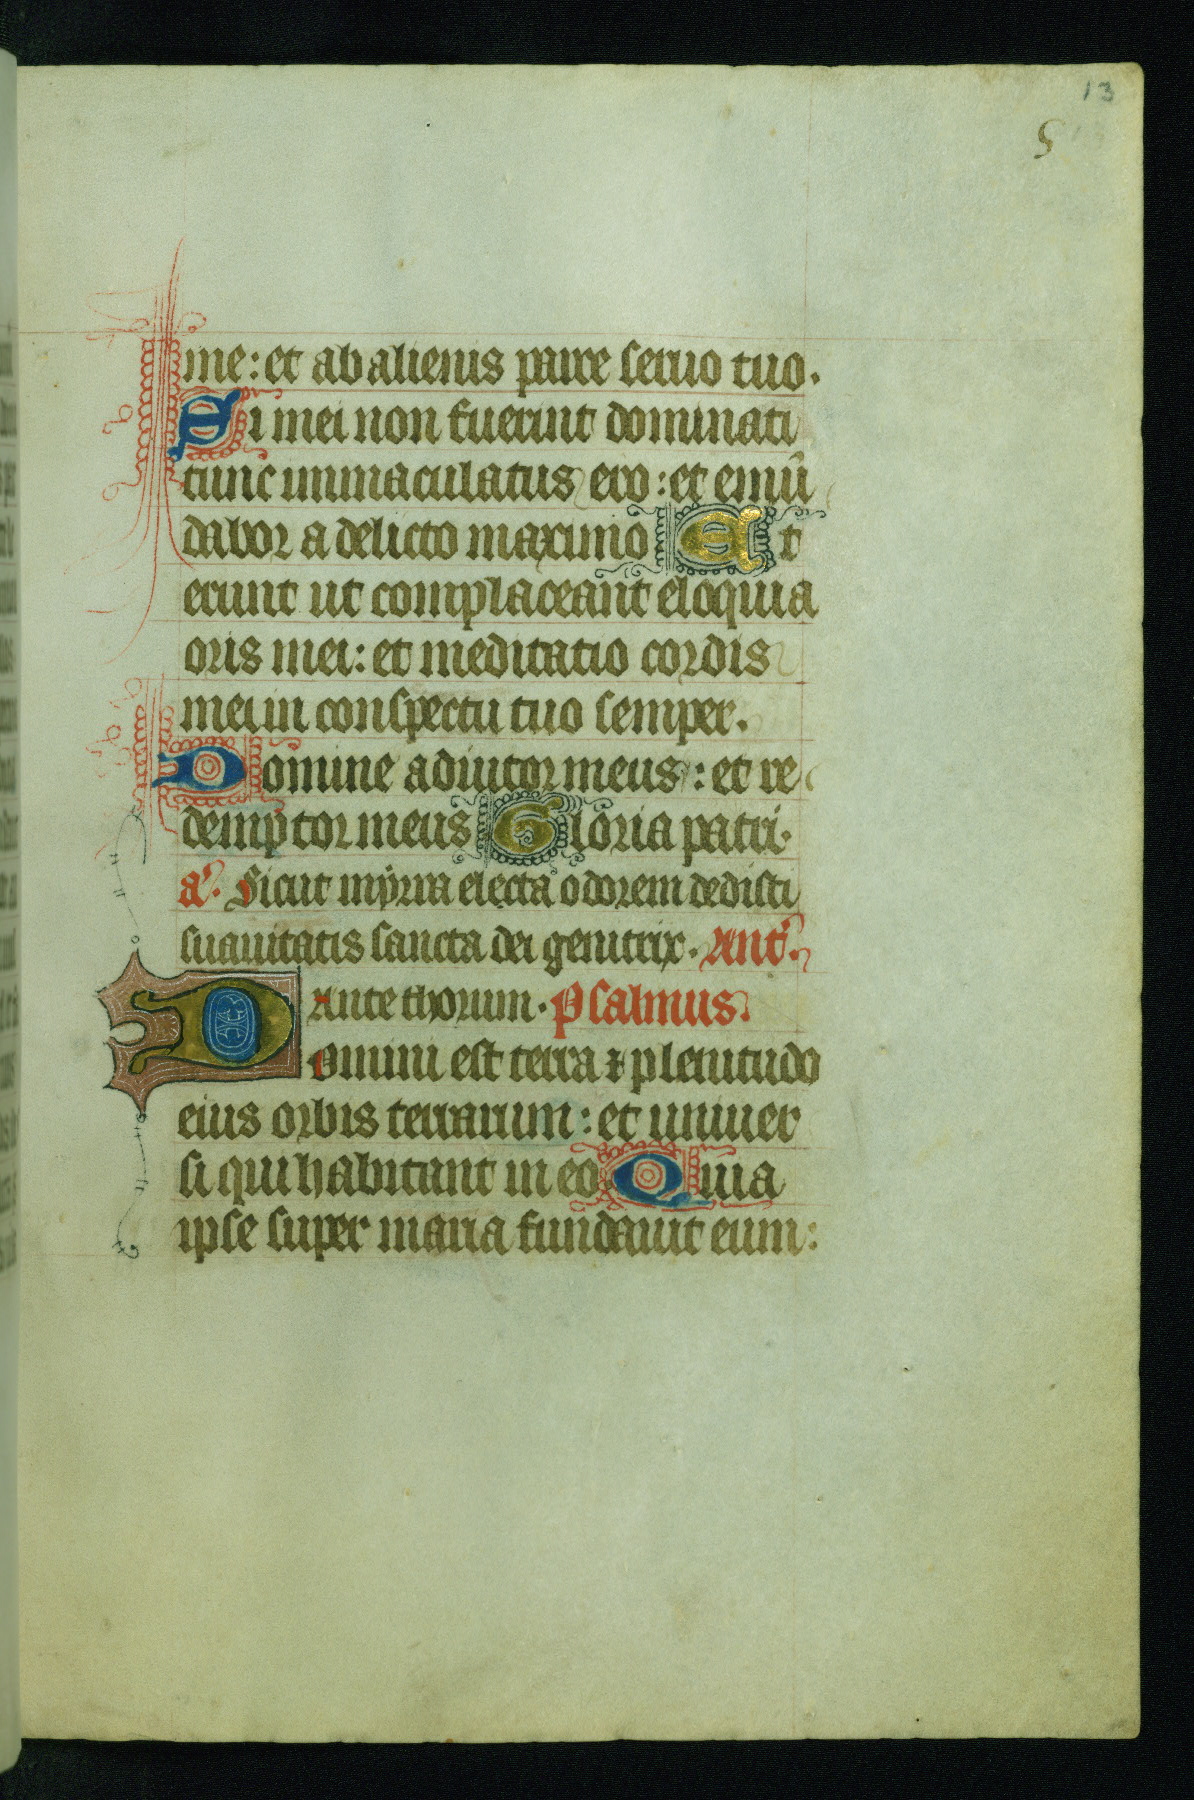 13
5
me: et ab alienis parce seruo tuo.
Si mei non fuerint dominati
tunc immaculatus ero: et emū
dabor a delicto maximo Et
erunt ut complaceant eloquia
oris mei: et meditatio cordis
mei in conspectu tuo semper.
Domine adiutor meus: et re
demptor meus Gloria patri.
a. Sicut mÿrra electa odorem dedisti
suauitatis sancta dei genitrix. Ant.
Ante thorum. Psalmus.
Domini est terra ⁊ plenitudo
eius orbis terrarum: et uniuer
si qui habitant in eo Quia
ipse super maria fundauit eum: